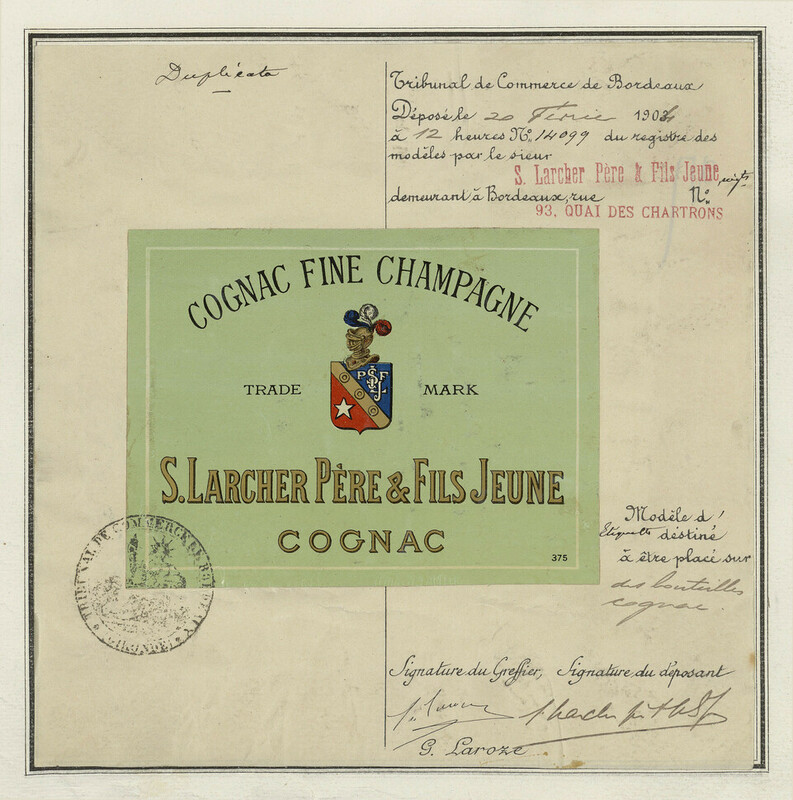 Duplicata
Tribunal de Commerce de Bordeaux
Déposé le 20 Février 1904
à 12 heures No. 14099 du registre des
modèles par le sieur
S. Larcher Père & Fils Jeune, négts
demeurant à Bordeaux, rue No.
93, QUAI DES CHARTRONS
COGNAC FINE CHAMPAGNE
PSFLJ
TRADE MARK
S. LARCHER PÈRE & FILS JEUNE
COGNAC
375
TRIBUNAL DE COMMERCE DE BORDEAUX
(GIRONDE)
Modèle d'
Etiquette destiné
à être placé sur
des bouteilles
cognac.
Signature du Greffier, Signature du déposant
G. Laroze